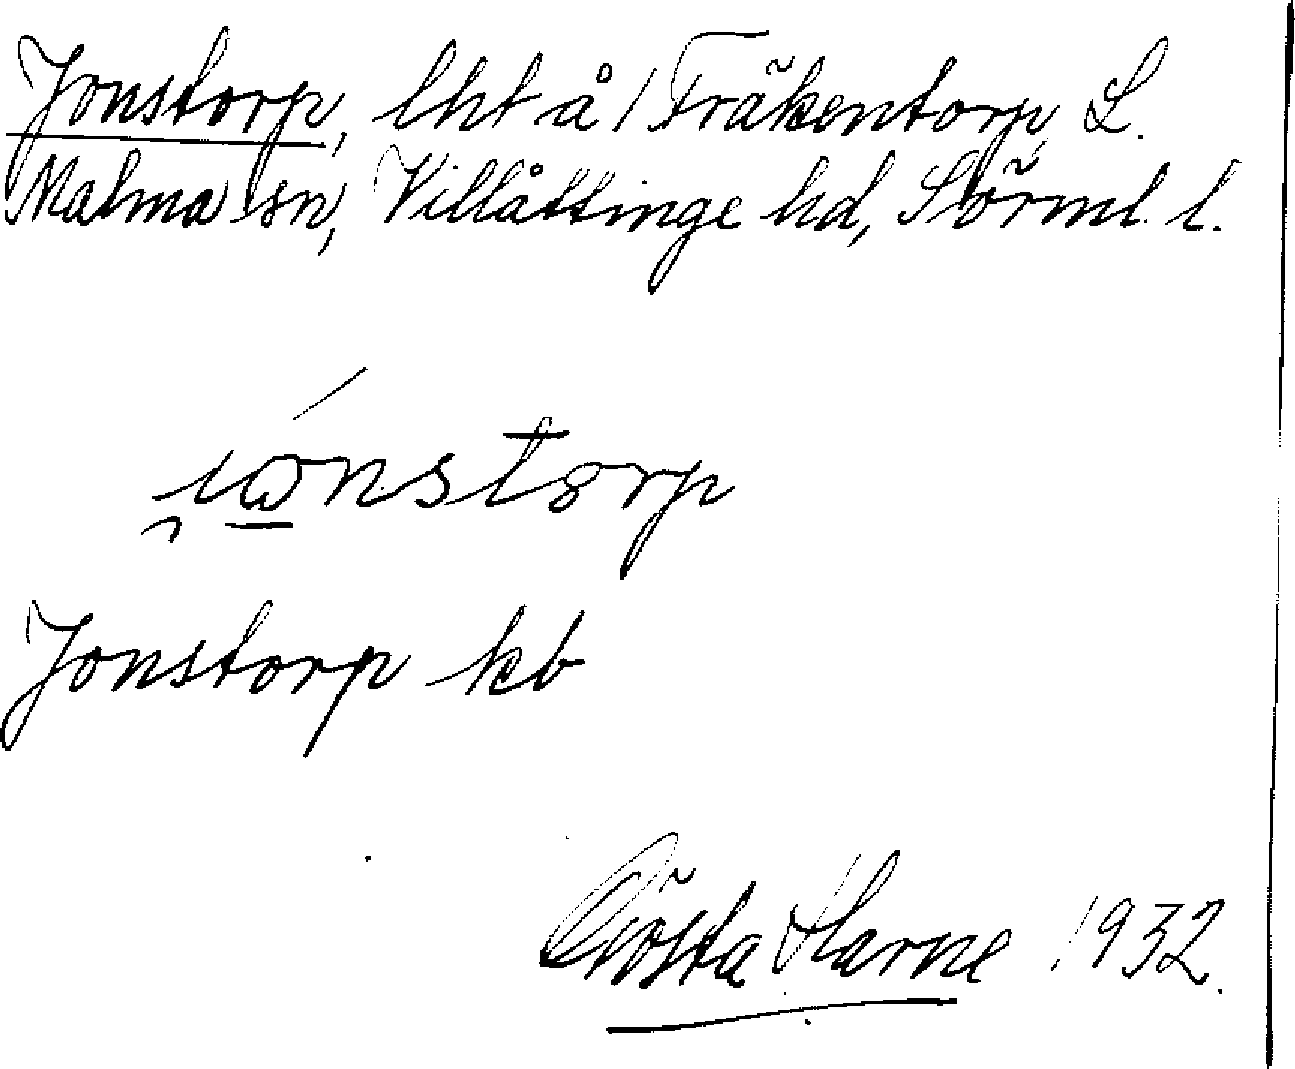 Jonstorp, lht å / Fräkentorp, L.
Malma sn, Villåttinge hd, Sörml. l.
Jonstorp kb
Gösta Harne 1932.